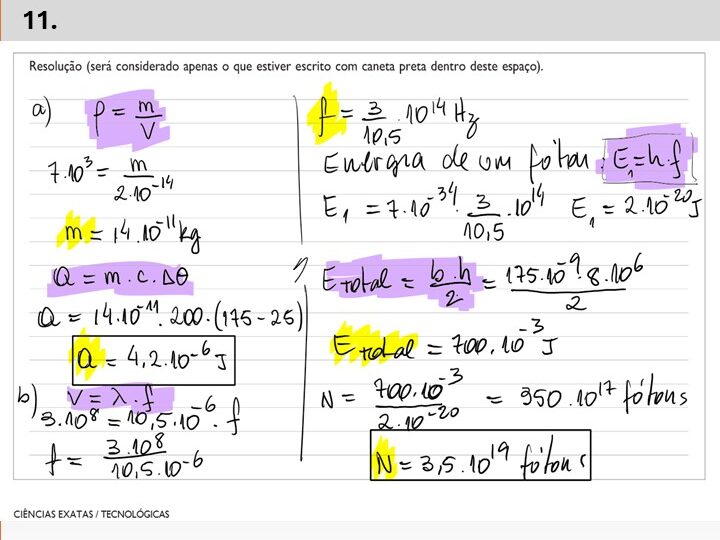 11.
Resolução (será considerado apenas o que estiver escrito com caneta preta dentro deste espaço).
a) ρ = m/V
7·10³ = m/2·10⁻¹⁴
m = 14·10⁻¹¹ kg
Q = m·c·Δθ
Q = 14·10⁻¹¹·200·(175-25)
Q = 4,2·10⁻⁶ J
b) V = λ·f
3·10⁸ = 10,5·10⁻⁶·f
f = 3·10⁸/10,5·10⁻⁶
f = 3/10,5 ·10¹⁴ Hz
Energia de um fóton: E₁=h·f
E₁ = 7·10⁻³⁴· 3/10,5 ·10¹⁴ E₁ = 2·10⁻²⁰ J
E total = b·h/2 = 175·10⁻⁹·8·10⁶/2
E total = 700·10⁻³ J
N = 700·10⁻³/2·10⁻²⁰ = 350·10¹⁷ fótons
N = 3,5·10¹⁹ fótons
CIÊNCIAS EXATAS / TECNOLÓGICAS